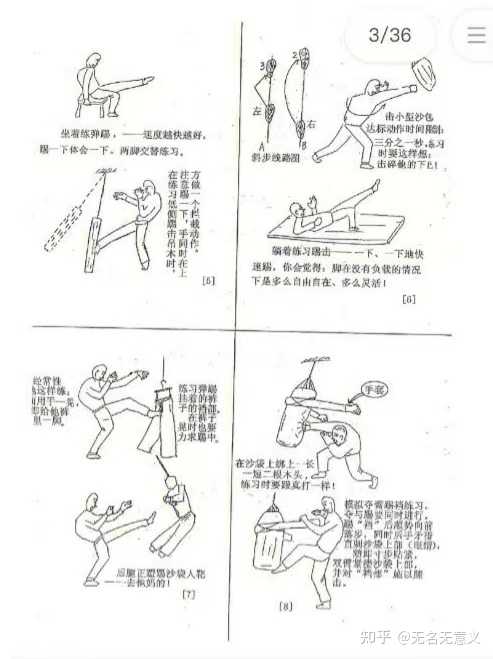 3/36
坐着练弹踢，——速度越快越好，
踢一下体会一下。两脚交替练习。
在练习低侧踢击吊木时，
注意踢一下，手同时在上
方做一个拦截动作。
[5]
3
2
左
右
A
B
斜步线路图
击小型沙包
达标动作时间限制:
三分之一秒，练习
时要这样想:
击碎他的下巴!
躺着练习踢击——一下、一下地快
速踢，你会觉得: 脚在没有负载的情况
下是多么自由自在、多么灵活!
[6]
经常性
练习弹踢
挂着的裤
子的裆部，
在裤子
晃时也要
力求踢中。
后腿正蹬踢沙袋人靶
——去他妈的!
[7]
手套
在沙袋上绑上一长
一短二根木头，
练习时要跟真打一样!
模拟夺臂踢裆练习，
夺与踢要同时进行，
踢“裆”后顺势向前
落步，同时后手矛指
直刺沙袋上部(眼睛)，
随即寸步贴紧，
双臂紧搂沙袋上部，
并对“裆部”施以膝
击。
[8]
知乎 @无名无意义